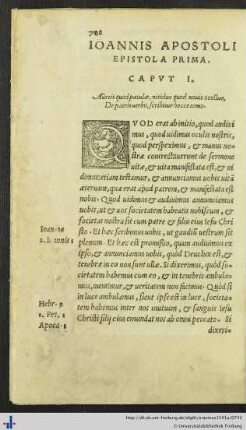 708
IOANNIS APOSTOLI
EPISTOLA PRIMA.
CAPVT I.
De patris verbo, scribitur
QVOD erat ab initio, quod audiui
mus, quod uidimus oculis nostris,
quod perspeximus, & manus no
stræ contrectuerunt de sermone
uitæ, & uita manifestata est, & ui
dimus, et iam testamur, & annunciamus uobis uitã
æternam, quæ erat apud patrem, & manifestata est
nobis. Quod uidimus & audiuimus annunciamus
uobis, ut & uos societatem habeatis nobiscum, &
societas nostra sit cum patre & filio eius Iesu Chri
sto. Et hæc scribimus uobis, ut gaudiũ uestrum sit
Ioan. 19
plenum. Et hæc est promissio, quam audiuimus ex
ipso, & annunciamus uobis, quòd Deus lux est, &
tenebræ in eo non sunt ullæ. Si dixerimus, quòd so-
cietatem habemus cum eo, & in tenebris ambula-
mus, mentimur, & ueritatem non facimus. Quòd si
Hebr. 9
in luce ambulamus, sicut ipse est in luce, societa-
1. Pet. 1
tem habemus inter nos mutuum, & sanguis Iesu
Apoca. 1
Christi filij eius emundat nos ab omni peccato. Si
dixeri-
© Universitätsbibliothek Freiburg